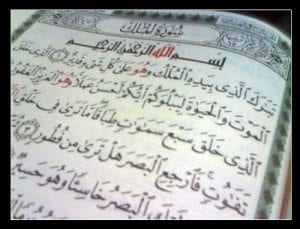 سُورَةُ المُلْكِ
بِسْمِ اللَّهِ الرَّحْمَٰنِ الرَّحِيمِ
تَبَٰرَكَ ٱلَّذِى بِيَدِهِ ٱلْمُلْكُ وَهُوَ عَلَىٰ كُلِّ شَىْءٍ قَدِيرٌ ١ ٱلَّذِى خَلَقَ
ٱلْمَوْتَ وَٱلْحَيَوٰةَ لِيَبْلُوَكُمْ أَيُّكُمْ أَحْسَنُ عَمَلًا وَهُوَ ٱلْعَزِيزُ ٱلْغَفُورُ
ٱلَّذِى خَلَقَ سَبْعَ سَمَٰوَٰتٍ طِبَاقًا مَّا تَرَىٰ فِى خَلْقِ
تَفَٰوُتٍ فَٱرْجِعِ ٱلْبَصَرَ هَلْ تَرَىٰ مِن فُطُورٍ ٣
ٱلْبَصَرُ خَاسِئًا وَهُوَ حَسِيرٌ